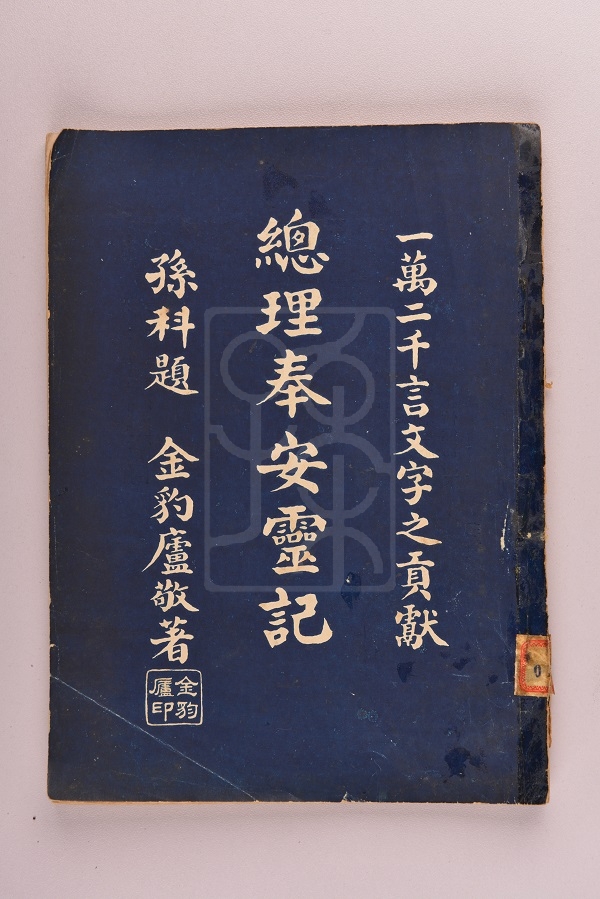 一萬二千言文字之貢獻
總理奉安靈記
孫科題 金豹廬敬著
金豹
廬印
0